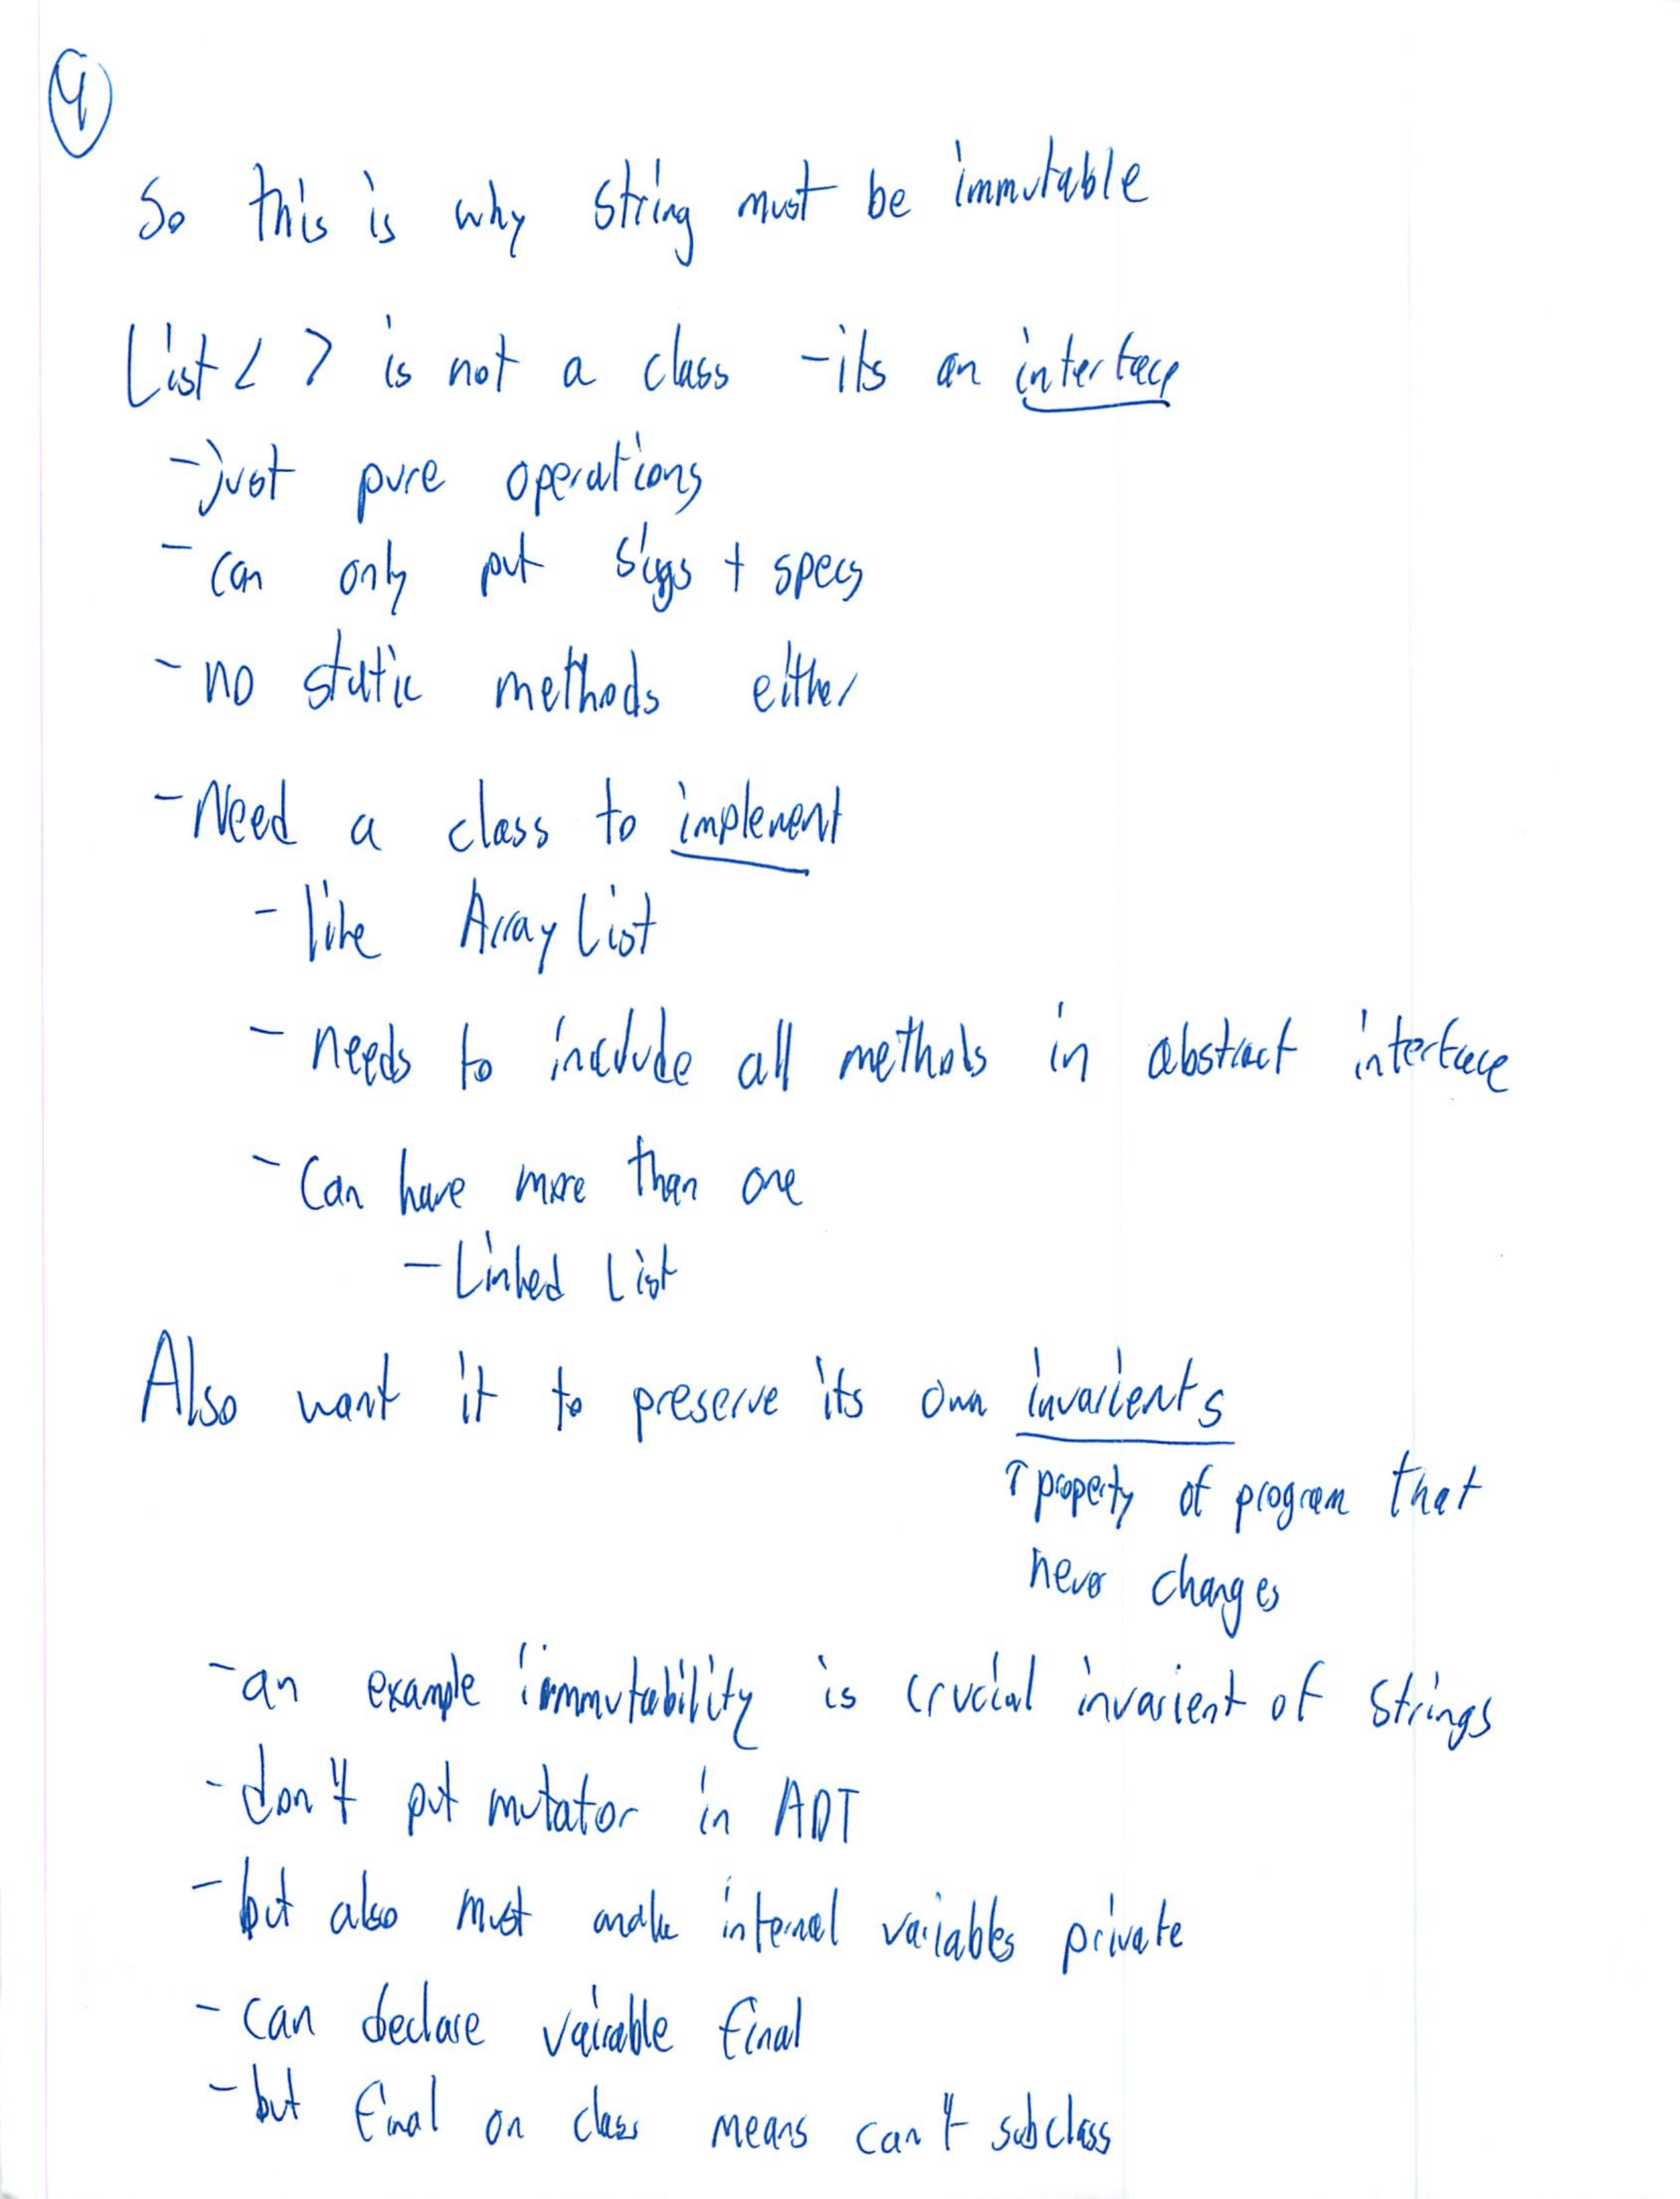 4
So this is why string must be immutable
List < > is not a class - its an interface
- just pure operations
- can only put sigs + specs
- no static methods either
- Need a class to implement
- like Array List
- needs to include all methods in abstract interface
- Can have more than one
- Linked List
Also want it to preserve its own invarients
↑ property of program that
never changes
- an example immutability is crucial invarient of strings
- don't put mutator in ADT
- but also must make internal variables private
- can declare variable final
- but final on class means can't subclass